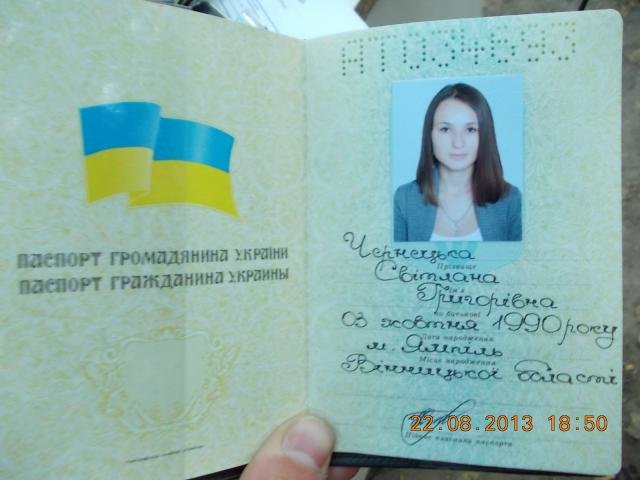 ПАСПОРТ ГРОМАДЯНИНА УКРАЇНИ
ПАСПОРТ ГРАЖДАНИНА УКРАИНЫ
Чернецька
Прізвище
Світлана
Ім'я
Григорівна
по батькові
03 жовтня 1990 року
Дата народження
м. Ямпіль
Місце народження
Вінницької області
22.08.2013 18:50
Підпис власника паспорта